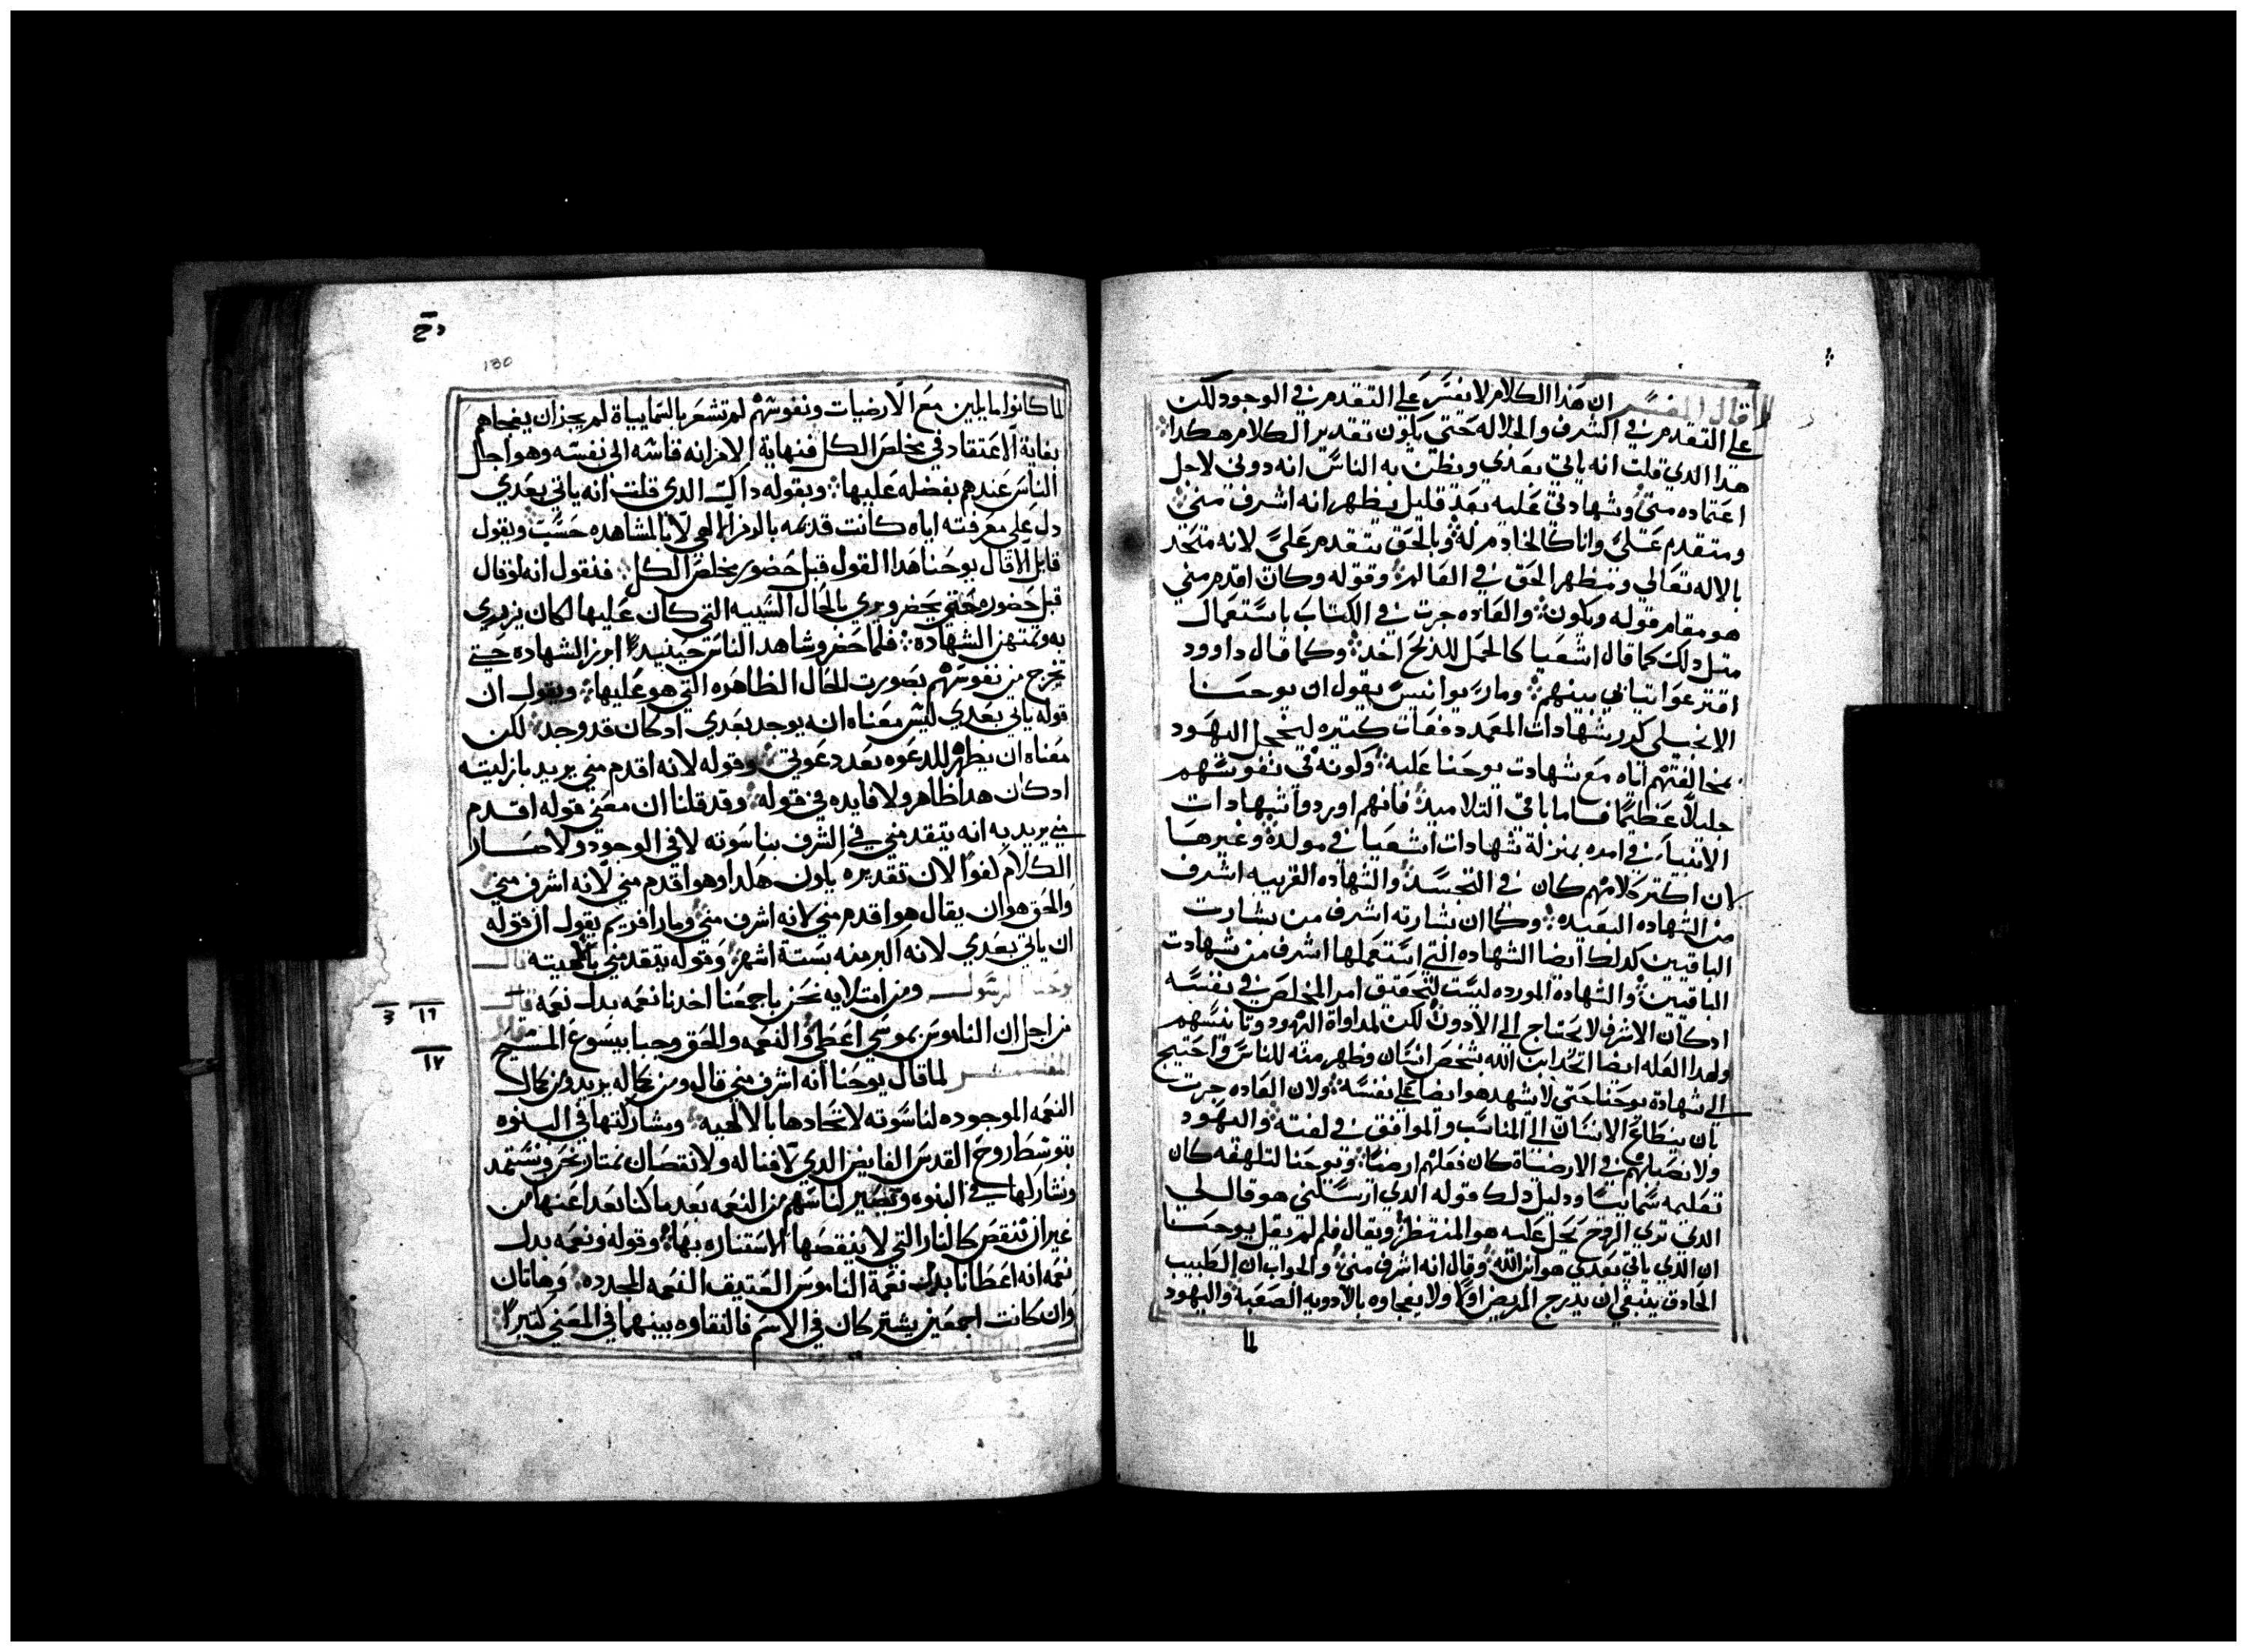 قال المفسر ان هذا الكلام لا يفسر على التقدم في الوجود لكن
على التقدم في الشرف والجلاله حتى يكون تقدير الكلام هكذا
هذا الدي قلت انه ياتي بعدي ويظن به الناس انه دوني لاجل
اعتماده مني وشهادتي عليه بعد قليل يظهر انه اشرف مني
ومتقدم علي وانا كالخادم له وبالحق يتقدم علي لانه متحد
بالاله تعالى ومظهر الحق في العالم وقوله وكان اقدم مني
هو مقام قوله ويكون والعاده جرت في الكتاب باستعمال
متل دلك كما قال اشعيا كالحمل للدبح اخد وكما قال داوود
اقترعوا تيابي بينهم ومار يوانيس يقول ان يوحنا
الانجيلي كرر شهادات المعمد دفعات كتيره ليخجل اليهود
بمخالفتهم اياه مع شهادت يوحنا عليه وكونه في نفوسهم
جليلا عظيما فاما باقي التلاميد فانهم اوردوا شهادات
الانبياء في امره بمنزلة شهادات اشعيا في مولده وغيرها
لان اكتر كلامهم كان في التجسد والشهاده القريبه اشرف
من الشهاده البعيده وكما ان بشارته اشرف من بشارت
الباقيين كدلك ايضا الشهاده التي استعملها اشرف من شهادت
الباقيين والشهادة المورده ليست لتحقيق امر المخلص في نفسه
ادكان الاشرف لا يحتاج الى الادون لكن لمداواة اليهود وتانيسهم
ولهدا العله ايضا اتحد ابن الله بشخص انسان وظهر منه للناس واحتيج
الى شهادة يوحنا حتى لا يشهد هو ايضا على نفسه ولان العاده جرت
بان ينطاع الانسان الى المناسب والموافق في لغته واليهود
ولانصبابهم في الارضياة كان فعلهم ارضيا ويوحنا لتلهفه كان
تعليمه سمائيا ودليل دلك قوله الدي ارسلني هو قال لي
الدي ترى الروح يحل عليه هو المنتظر ويقال فلم لم يقل يوحنا
ان الدي ياتي بعدي هو ابن الله وقال انه اشرف مني والجواب ان الطبيب
الحادق ينبغي ان يدرج المريض اولا ولا يفجاوه بالادويه الصعبه واليهود
لما
دح
130
لما كانوا مايلين مع الارضيات ونفوسهم لم تشعر بالسماييياة لم يجز ان يفجاهم
بغاية الاعتقاد في مخلص الكل فنهاية الامر انه قاسه الى نفسه وهو اجل
الناس عندهم بفضله عليها وبقوله داك الدي قلت انه ياتي بعدي
دل على معرفته اياه كانت قديمه بالرمز الالهي لا بالمشاهده حسب ويقول
قايل الا قال يوحنا هدا القول قبل حضور مخلص الكل فنقول انه لو قال
قبل حضوره حتى يحضر ويرى بالحال السيه التي كان عليها لكان يزدرى
به وتمتهن الشهاده فلما حضر وشاهد الناس حينيد ابرز الشهاده حتى
تخرج من نفوسهم بصورت الحال الظاهره التي هو عليها ويقول ان
قوله ياتي بعدي ليس معناه انه يوجد بعدي ادكان قد وجد لكن
معناه ان يظهر للدعوه بعد دعوتي وقوله لانه اقدم مني يريد بازليته
ادكان هدا ظاهر ولا فايده في قوله وقد قلنا ان معنى قوله اقدم
مني يريد به انه يتقدمني في الشرف بناسوته لا في الوجود ولا صار
الكلام لغوا لان تقديره يكون هكدا وهو اقدم مني لانه اشرف مني
والحق هو ان يقال هو اقدم مني لانه اشرف مني ومار افريم يقول ان قوله
ان ياتي بعدي لانه اكبر منه بستة اشهر وقوله يتقدمني بالهيته قال
يوحنا الرسول ومن امتلايه نحن باجمعنا اخدنا نعمه بدل نعمه قال
١٦ 3
من اجل ان الناموس بموسى اعطي والنعمه والحق وجبا بيسوع المسيح
١٧
المفسر لما قال يوحنا انه اشرف مني قال ومن كماله يريد ومن كمال
النعمه الموجوده لناسوته لاتحادها بالالهيه ومشاركتها في البنوه
بتوسط روح القدس الفايض الدي لا فنا له ولا نقصان نمتار نحن ونستمد
ونشاركها في البنوه وتصير لنا سهم من النعمه بعد ما كنا بعدا عنها من
غير ان تنقص كالنار التي لا ينقصها الاستناره بها وقوله ونعمه بدل
نعمه انه اعطانا بدل نعمة الناموس العتيف النعمه المجدده وهاتان
وان كانت اجمعين يشتركان في الاسم فالتقاوه بينهما في المعنى كتيرا